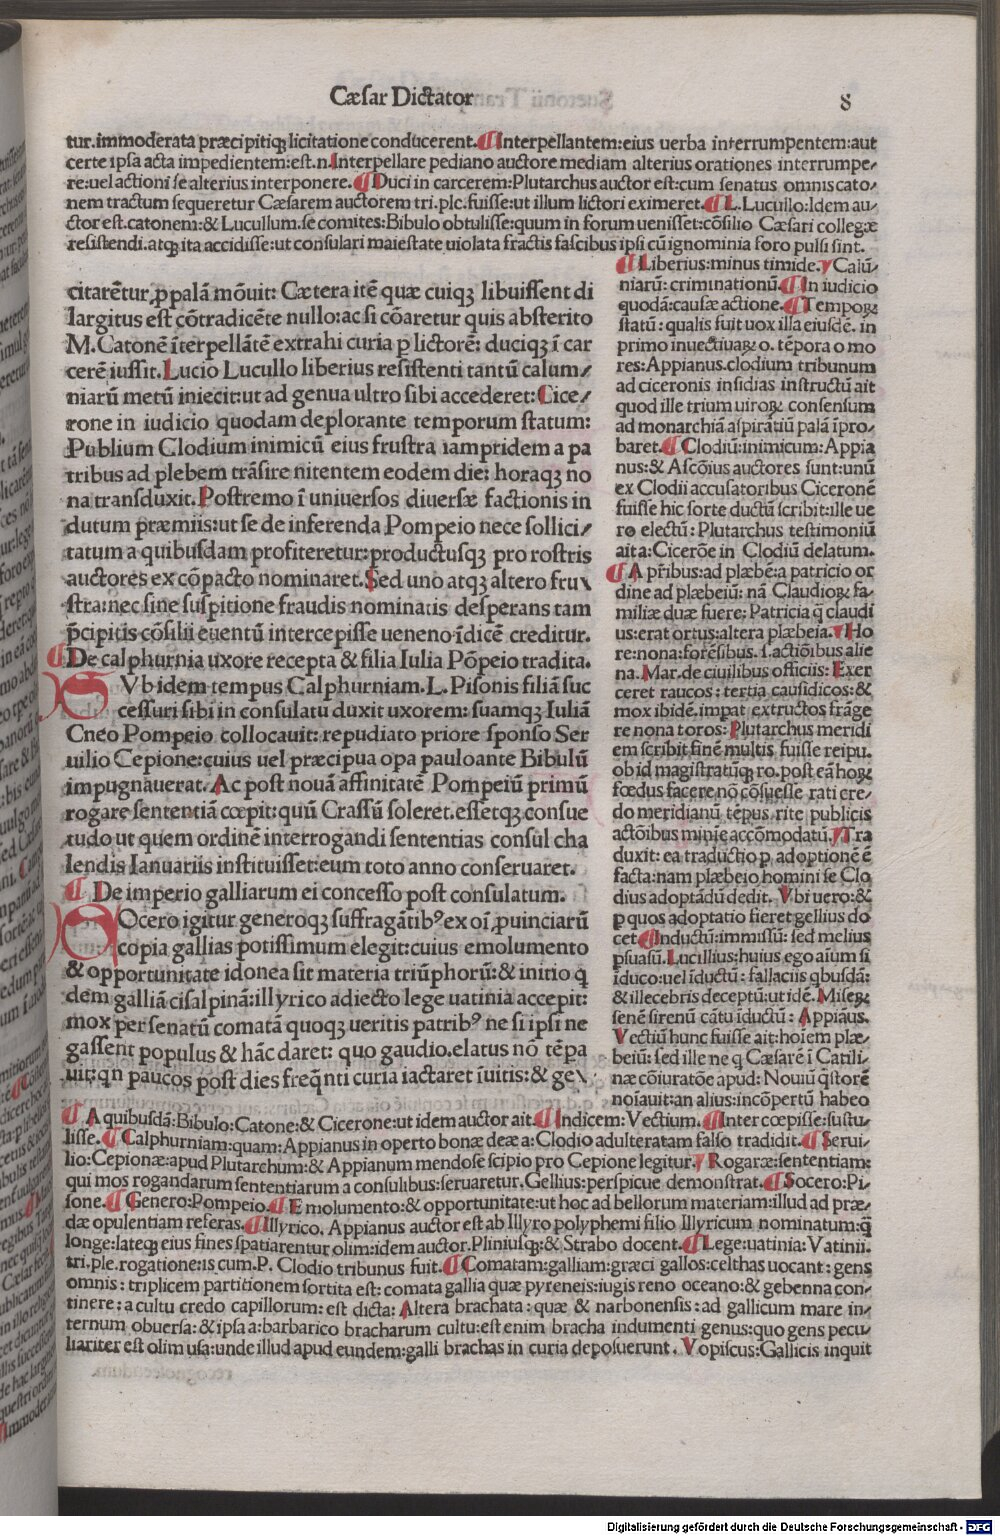 Cæsar Dictator
8
tur.immoderata præcipitiqꝫ licitatione conducerent. ¶Interpellantem:eius uerba interrumpentem:aut
certe ipsa acta impedientem:est.n.Interpellare pediano auctore mediam alterius orationes interrumpe⸗
re:uel actioni se alterius interponere. ¶Duci in carcerem:Plutarchus auctor est:cum senatus omnis cato⸗
nem tractum sequeretur Cæsarem auctorem tri.plc.fuisse:ut illum lictori eximeret. ¶L.Lucullo:Idem au⸗
ctor est.catonem:& Lucullum.se comites:Bibulo obtulisse:quum in forum uenisset:cōsilio Cæsari collegæ
resistendi.atqꝫ ita accidisse:ut consulari maiestate uiolata fractis fascibus ipsi cū ignominia foro pulsi sint.
citarētur,ꝓ palā mōuit: Cætera itē quæ cuiqꝫ libuissent di
largitus est cōtradicēte nullo:ac si cōaretur quis absterito
M.Catonē īterpellātē extrahi curia ꝑ lictorē: duciqꝫ ī car
cerē iussit.Lucio Lucullo liberius resistenti tantū calum⸗
niarū metū iniecit:ut ad genua ultro sibi accederet:Cice⸗
rone in iudicio quodam deplorante temporum statum:
Publium Clodium inimicū eius frustra iampridem a pa
tribus ad plebem trāsire nitentem eodem die: horaqꝫ no
na transduxit. Postremo ī uniuersos diuersæ factionis in
dutum præmiis:ut se de inferenda Pompeio nece sollici⸗
tatum a quibusdam profiteretur:productusqꝫ pro rostris
auctores ex cōpacto nominaret.Sed uno atqꝫ altero fru⸗
stra:nec sine suspitione fraudis nominatis desperans tam
p̄cipitis cōsilii euentū intercepisse ueneno īdicē creditur.
¶De calphurnia uxore recepta & filia Iulia Pōpeio tradita.
SVb idem tempus Calphurniam.L.Pisonis filiā suc
cessuri sibi in consulatu duxit uxorem: suamqꝫ Iuliā
Cneo Pompeio collocauit: repudiato priore sponso Ser
uilio Cepione:cuius uel præcipua opa pauloante Bibulū
impugnauerat.Ac post nouā affinitatē Pompeiū primū
rogare sententiā cœpit:quū Crassū soleret.essetqꝫ consue
tudo ut quem ordinē interrogandi sententias consul cha
lendis Ianuariis instituisset:eum toto anno conseruaret.
¶ De imperio galliarum ei concesso post consulatum.
SOcero igitur generoqꝫ suffragātib⁹ ex oī ꝓuinciarū
copia gallias potissimum elegit:cuius emolumento
& opportunitate idonea sit materia triūphorū:& initio q
dem galliā cisalpinā:illyrico adiecto lege uatinia accepit:
mox per senatū comatā quoqꝫ ueritis patrib⁹ ne si ipsi ne
gassent populus & hāc daret: quo gaudio.elatus nō tēpa
uit:qn paucos post dies freq̄nti curia iactaret īuitis:& ge⸗
¶Liberius:minus timide. Calū⸗
niarū: criminationū. ¶In iudicio
quodā:causæ actione. ¶Temporꝝ
statū: qualis fuit uox illa eiusdē. in
primo inuectiuarꝝ o. tēpora o mo
res:Appianus.clodium tribunum
ad ciceronis insidias instructū ait
quod ille trium uirorꝝ consensum
ad monarchiā aspirātiū palā īpro⸗
baret. ¶Clodiū:inimicum:Appia
nus:& Ascōius auctores sunt:unū
ex Clodii accusatoribus Ciceronē
fuisse hic sorte ductū scribit:ille ue
ro electū: Plutarchus testimoniū
ait a:Cicerōe in Clodiū delatum.
¶A pr̄ibus:ad plæbē:a patricio or
dine ad plæbeiū: nā Claudiorꝝ fa⸗
miliæ duæ fuere: Patricia q̄ claudi
us:erat ortus:altera plæbeia. Ho
re:nona:forēsibus. s.actiōibus alie
na. Mar.de ciuilibus officiis: Exer
ceret raucos: tertia causidicos:&
mox ibidē.impat extructos frāge
re nona toros: Plutarchus meridi
em scribit finē multis fuisse reipu.
ob id magistratūqꝫ ro.post eā horꝝ
fœdus facere nō cōsuesse rati cre⸗
do meridianū tēpus.rite publicis
actōibus minie accōmodatū. Tra
duxit: ea traductio ꝑ adoptionē ē
facta:nam plæbeio homini se Clo
dius adoptādū dedit. Vbi uero:&
ꝑ quos adoptatio fieret gellius do
cet ¶Inductū:immissū: sed melius
ꝑsuasū. Lucillius: huius ego aium si
īduco:uel īductū: fallaciis qbusdā:
& illecebris deceptū:ut idē. Miserꝝ
senē sirenū cātu īductū: Appiāus.
Vectiū hunc fuisse ait:hoīem plæ⸗
beiū: sed ille ne q Cæsarē ī Catili⸗
næ cōiuratōe apud: Nouiū q̄storē
noīauit:an alius:incōpertū habeo
¶A quibusdā:Bibulo:Catone:& Cicerone:ut idem auctor ait. ¶Indicem:Vectium. ¶Intercœpisse:sustu⸗
lisse. ¶Calphurniam:quam:Appianus in operto bonæ deæ a:Clodio adulteratam falso tradidit. ¶Serui⸗
lio:Cepionæ:apud Plutarchum:& Appianum mendose scipio pro Cepione legitur. Rogaræ:sententiam:
qui mos rogandarum sententiarum a consulibus:seruaretur.Gellius:perspicue demonstrat. ¶Socero:Pi⸗
sone. ¶Genero:Pompeio. ¶Emolumento:& opportunitate:ut hoc ad bellorum materiam:illud ad præ⸗
dæ opulentiam referas. ¶Illyrico. Appianus auctor est ab Illyro polyphemi filio Illyricum nominatum:q̄
longe:lateqꝫ eius fines spatiarentur olim:idem auctor.Pliniusqꝫ:& Strabo docent. ¶Lege:uatinia: Vatinii.
tri.ple.rogatione:is cum.P. Clodio tribunus fuit. ¶Comatam:galliam:græci gallos:celthas uocant: gens
omnis: triplicem partitionem sortita est: comata gallia quæ pyreneis:iugis reno oceano:& gebenna con⸗
tinere: a cultu credo capillorum: est dicta: Altera brachata: quæ & narbonensis: ad gallicum mare in⸗
ternum obuersa: & ipsa a:barbarico bracharum cultu:est enim bracha indumenti genus:quo gens pecu⸗
liariter est olim usa:unde illud apud eundem:galli brachas in curia deposuerunt. Vopiscus:Gallicis inquit
Digitalisierung gefördert durch die Deutsche Forschungsgemeinschaft - DFG